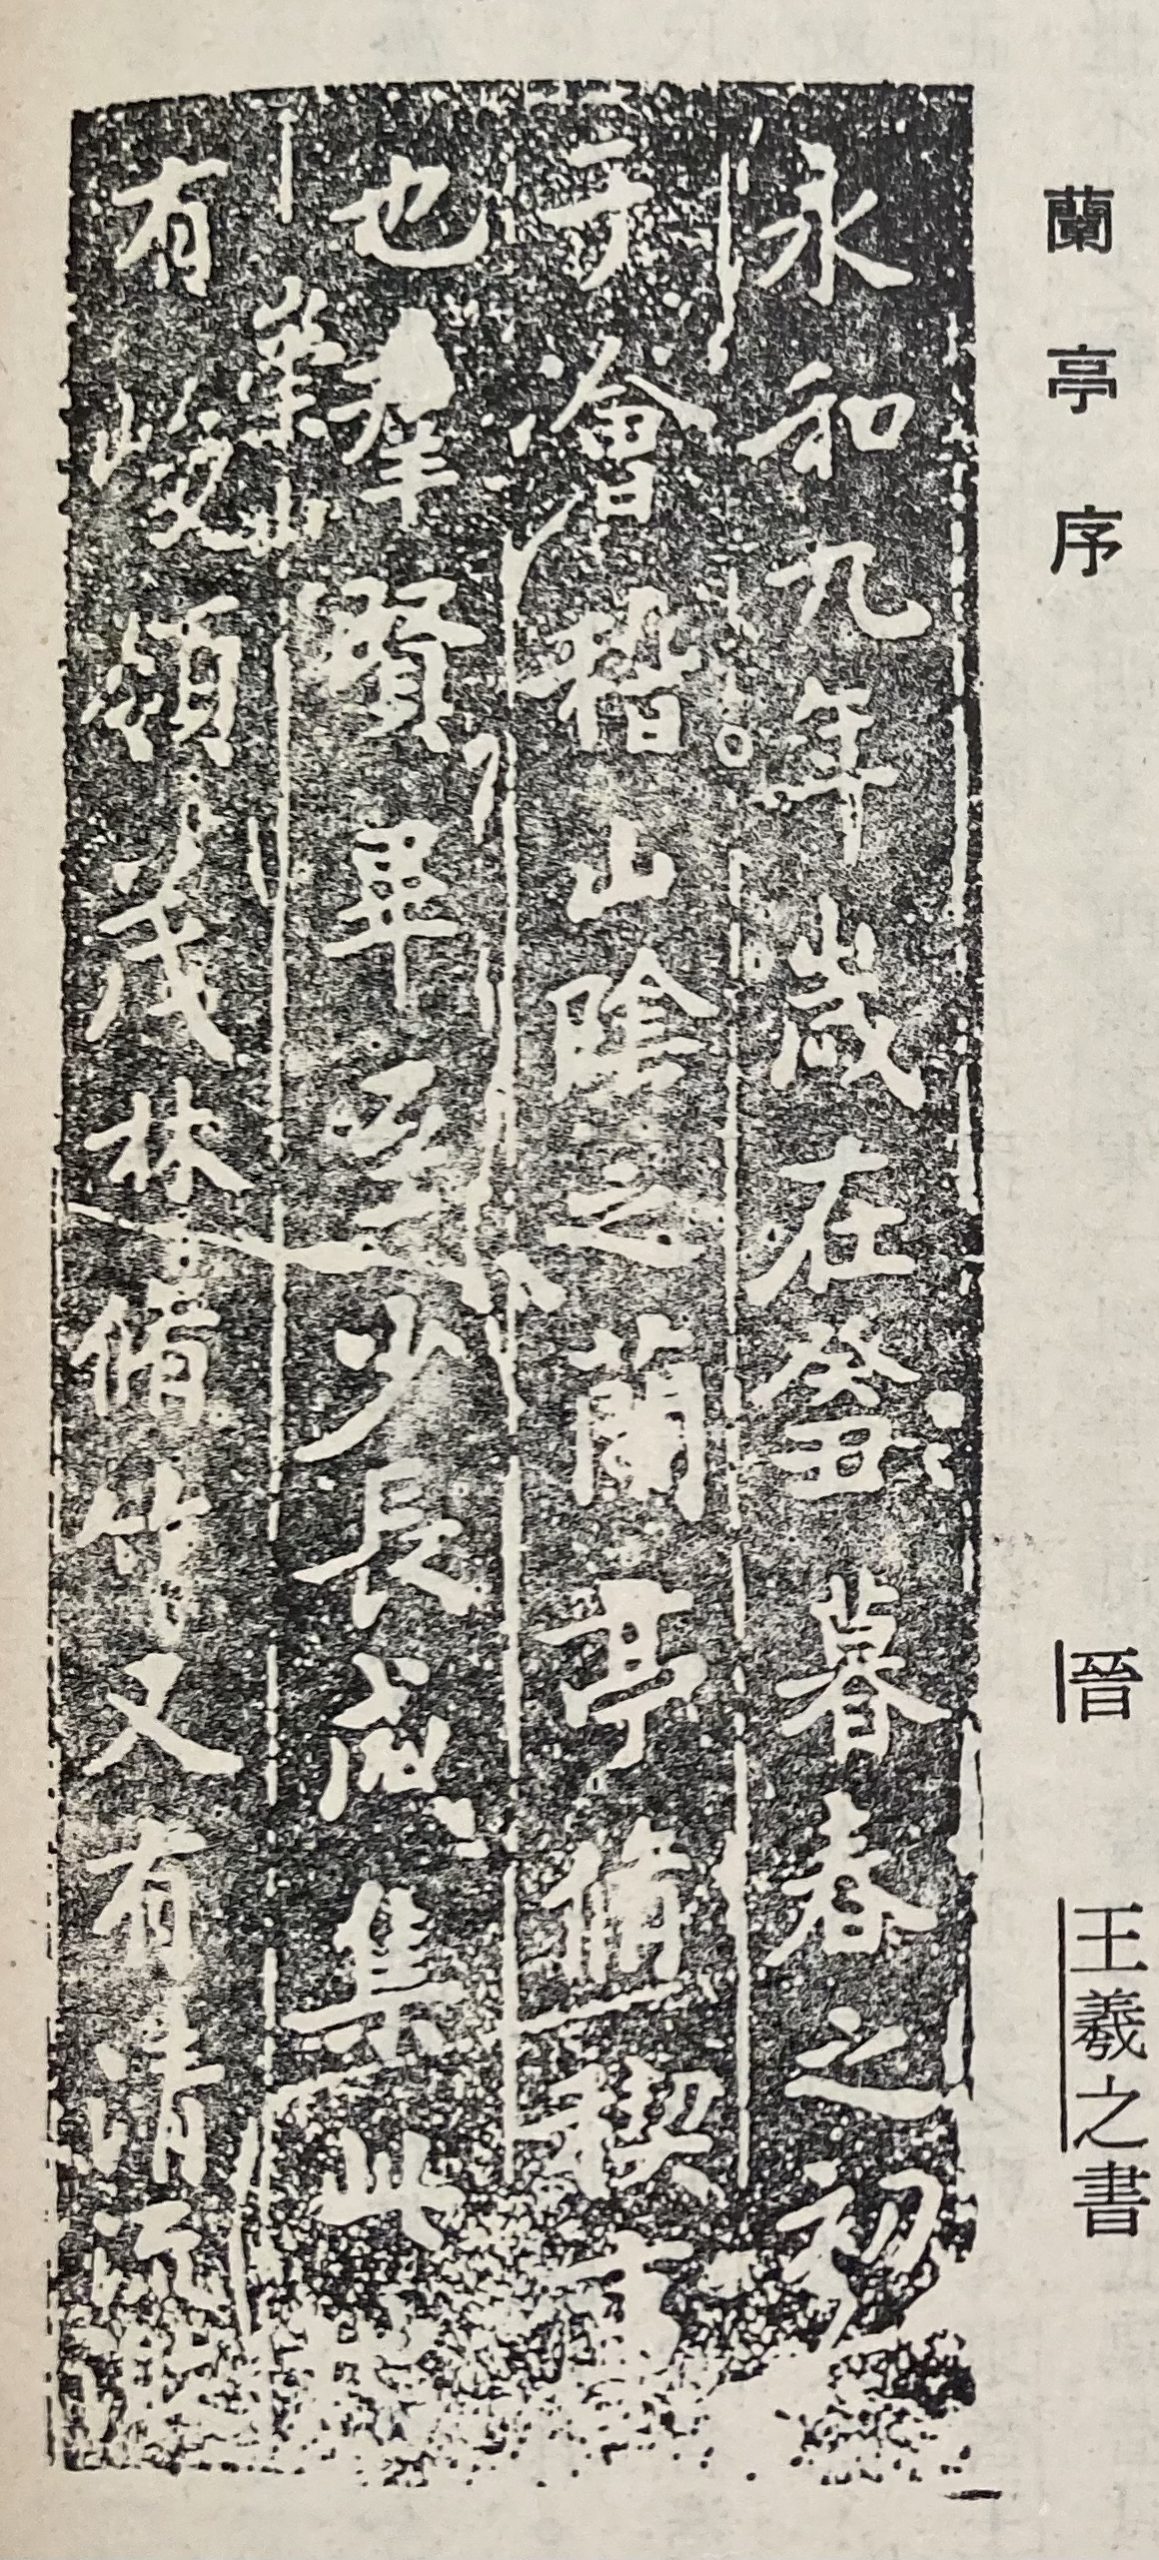 蘭亭序
晉 王羲之書
永和九年歲在癸丑暮春之初
于會稽山陰之蘭亭脩禊事
也羣賢畢至少長咸集此
崇山
有峻領茂林脩竹又有清流